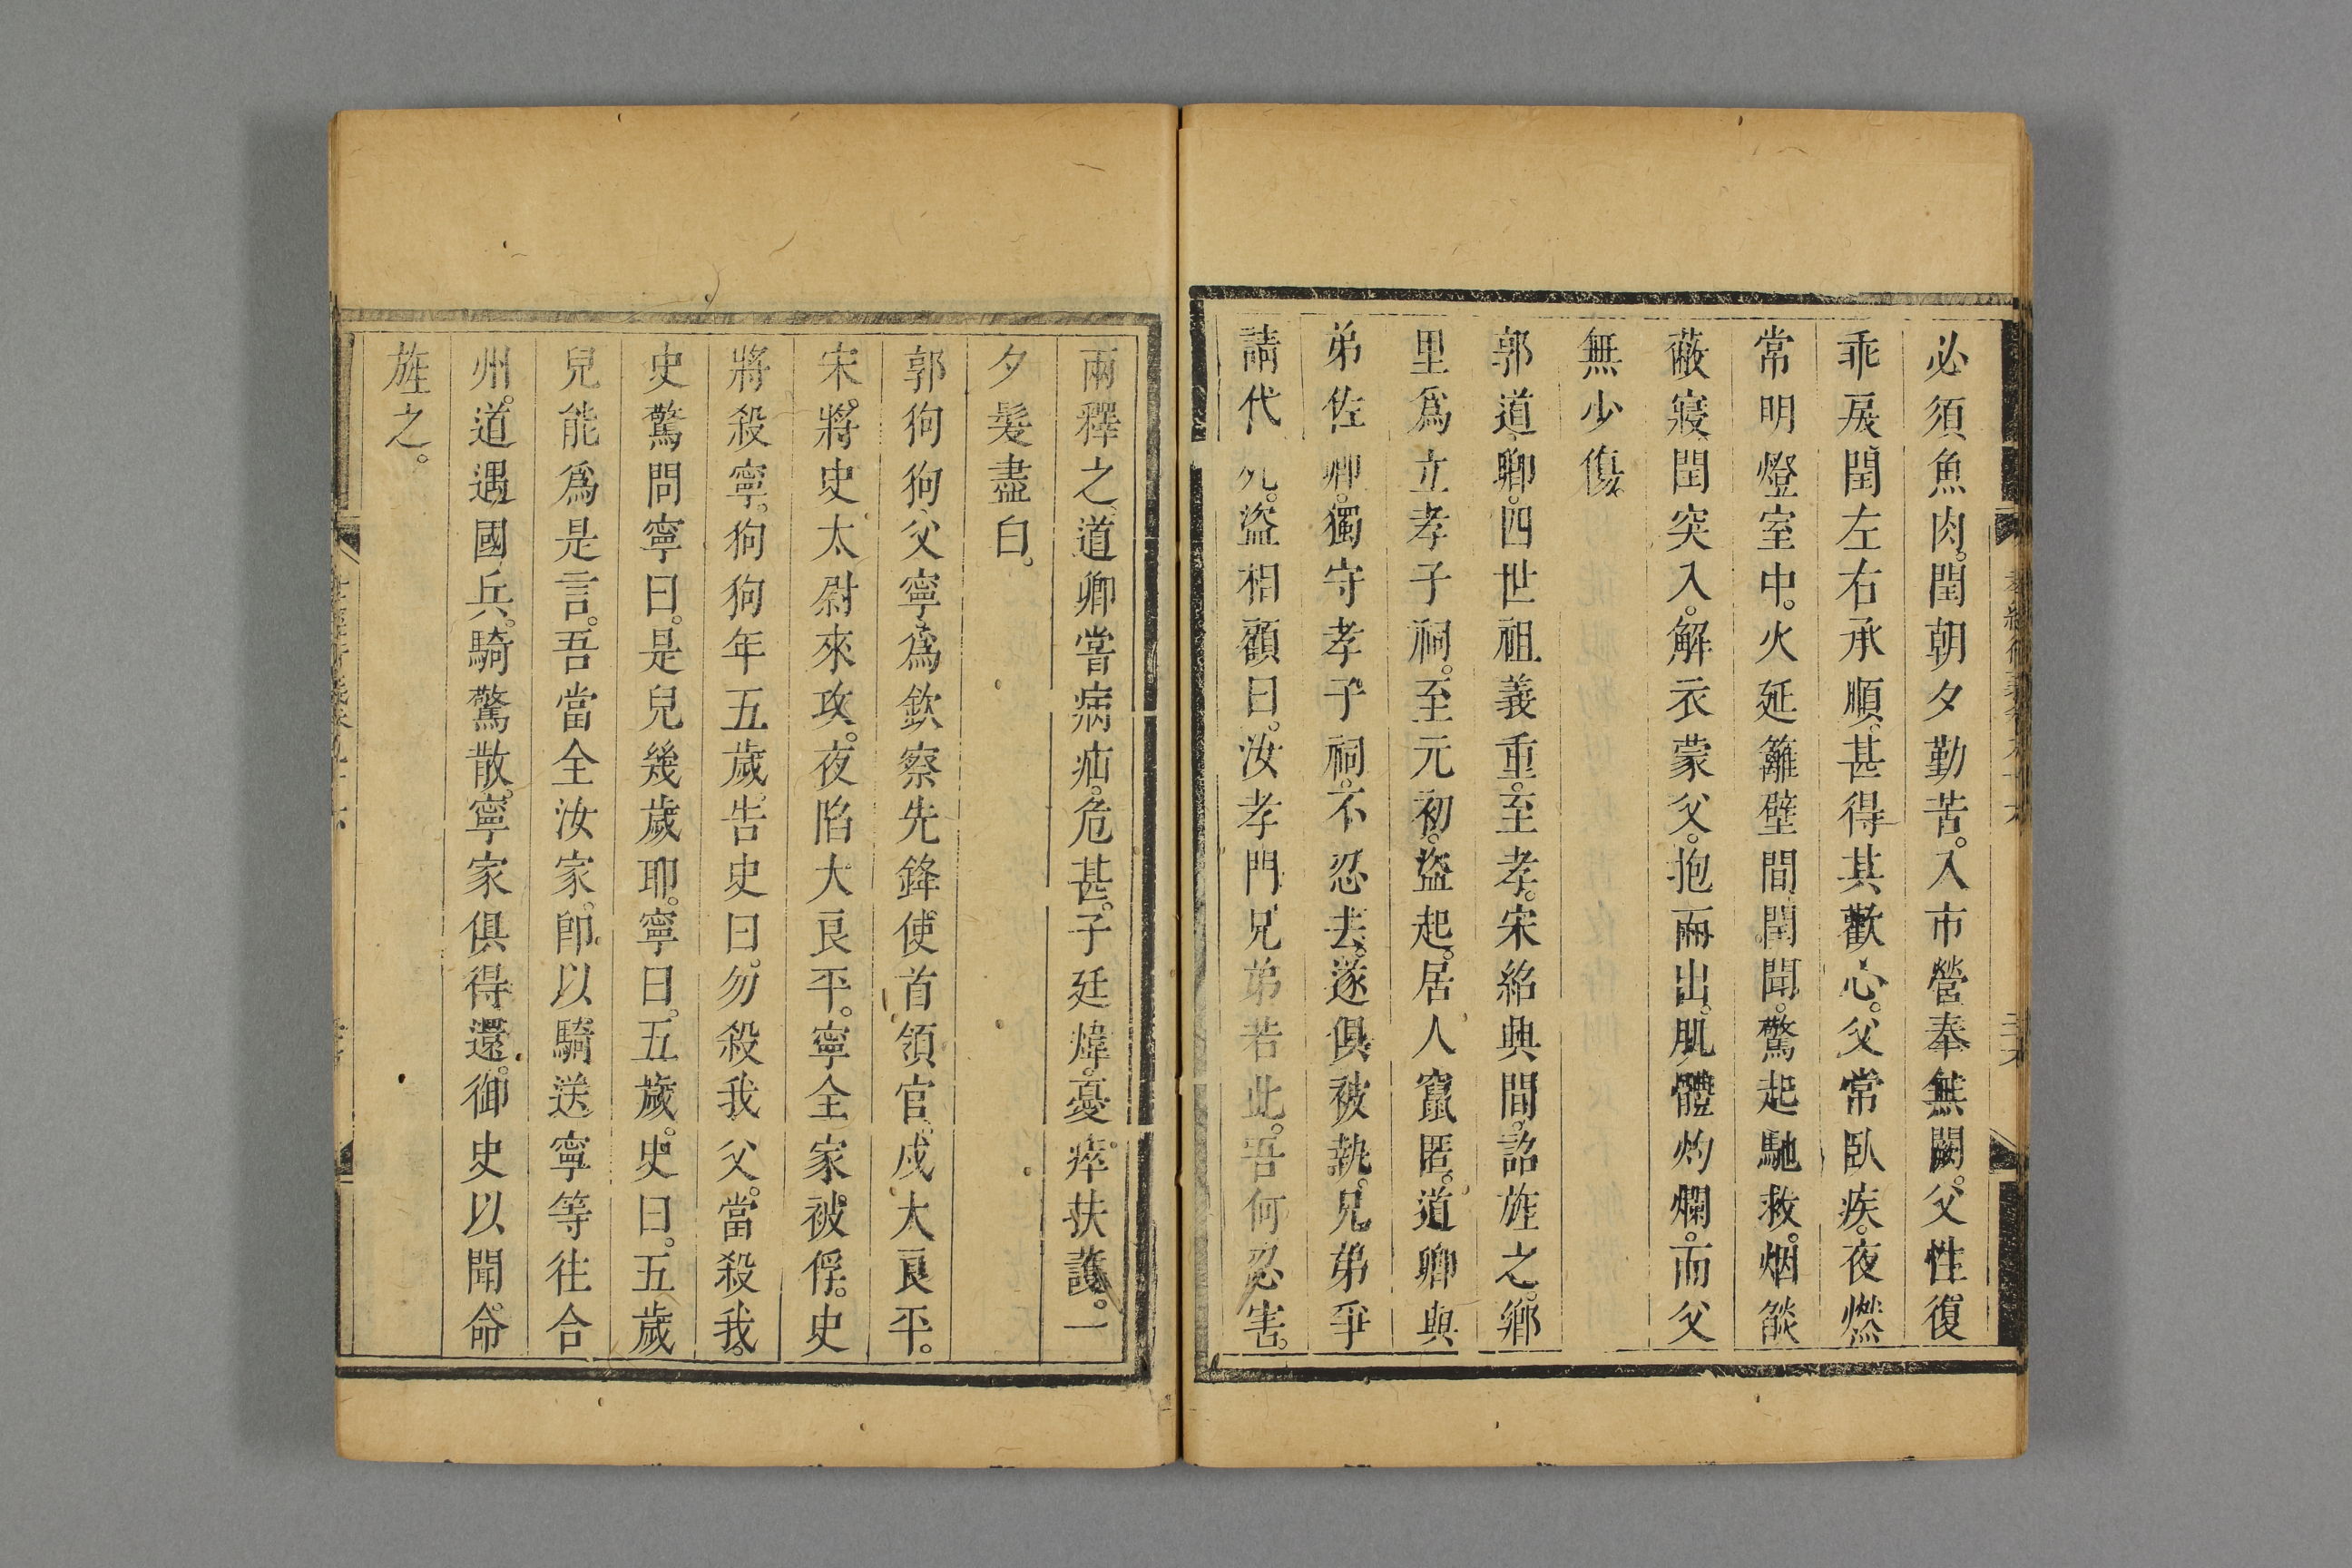 必須魚肉。閏朝夕勤苦。入市營奉無闕。父性復
乖戾。閏左右承順。甚得其歡心。父常臥疾。夜燃
常明燈室中。火延籬壁間。閏聞。驚起馳救。烟燄
蔽寢。閏突入。解衣蒙父。抱而出。肌體灼爛。而父
無少傷。
郭道卿。四世祖義重。至孝。宋紹興間。詔旌之。鄉
里爲立孝子祠。至元初。盜起。居人竄匿。道卿與
弟佐卿。獨守孝子祠。不忍去。遂俱被執。兄弟爭
請代死。盜相顧曰。汝孝門兄弟若此。吾何忍害。
兩釋之。道卿嘗病疝。危甚。子廷煒。憂瘁扶護。一
夕髮盡白。
郭狗狗。父寧。爲欽察先鋒使首領官。戍大良平。
宋將史太尉來攻。夜陷大良平。寧全家被俘。史
將殺寧。狗狗年五歲。告史曰。勿殺我父。當殺我。
史驚問寧曰。是兒幾歲耶。寧曰。五歲。史曰。五歲
兒能爲是言。吾當全汝家。卽以騎送寧等往合
州。道遇國兵。騎驚散。寧家俱得還。御史以聞。命
旌之。